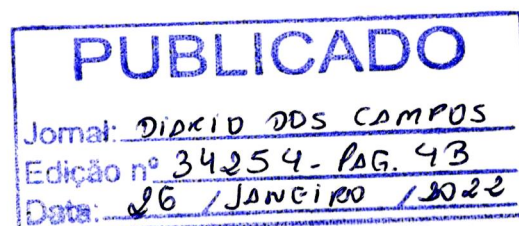 PUBLICADO
Jornal: DIARIO DOS CAMPOS
Edição nº 34254 - PAG. 4B
Data: 26 / JANEIRO / 2022